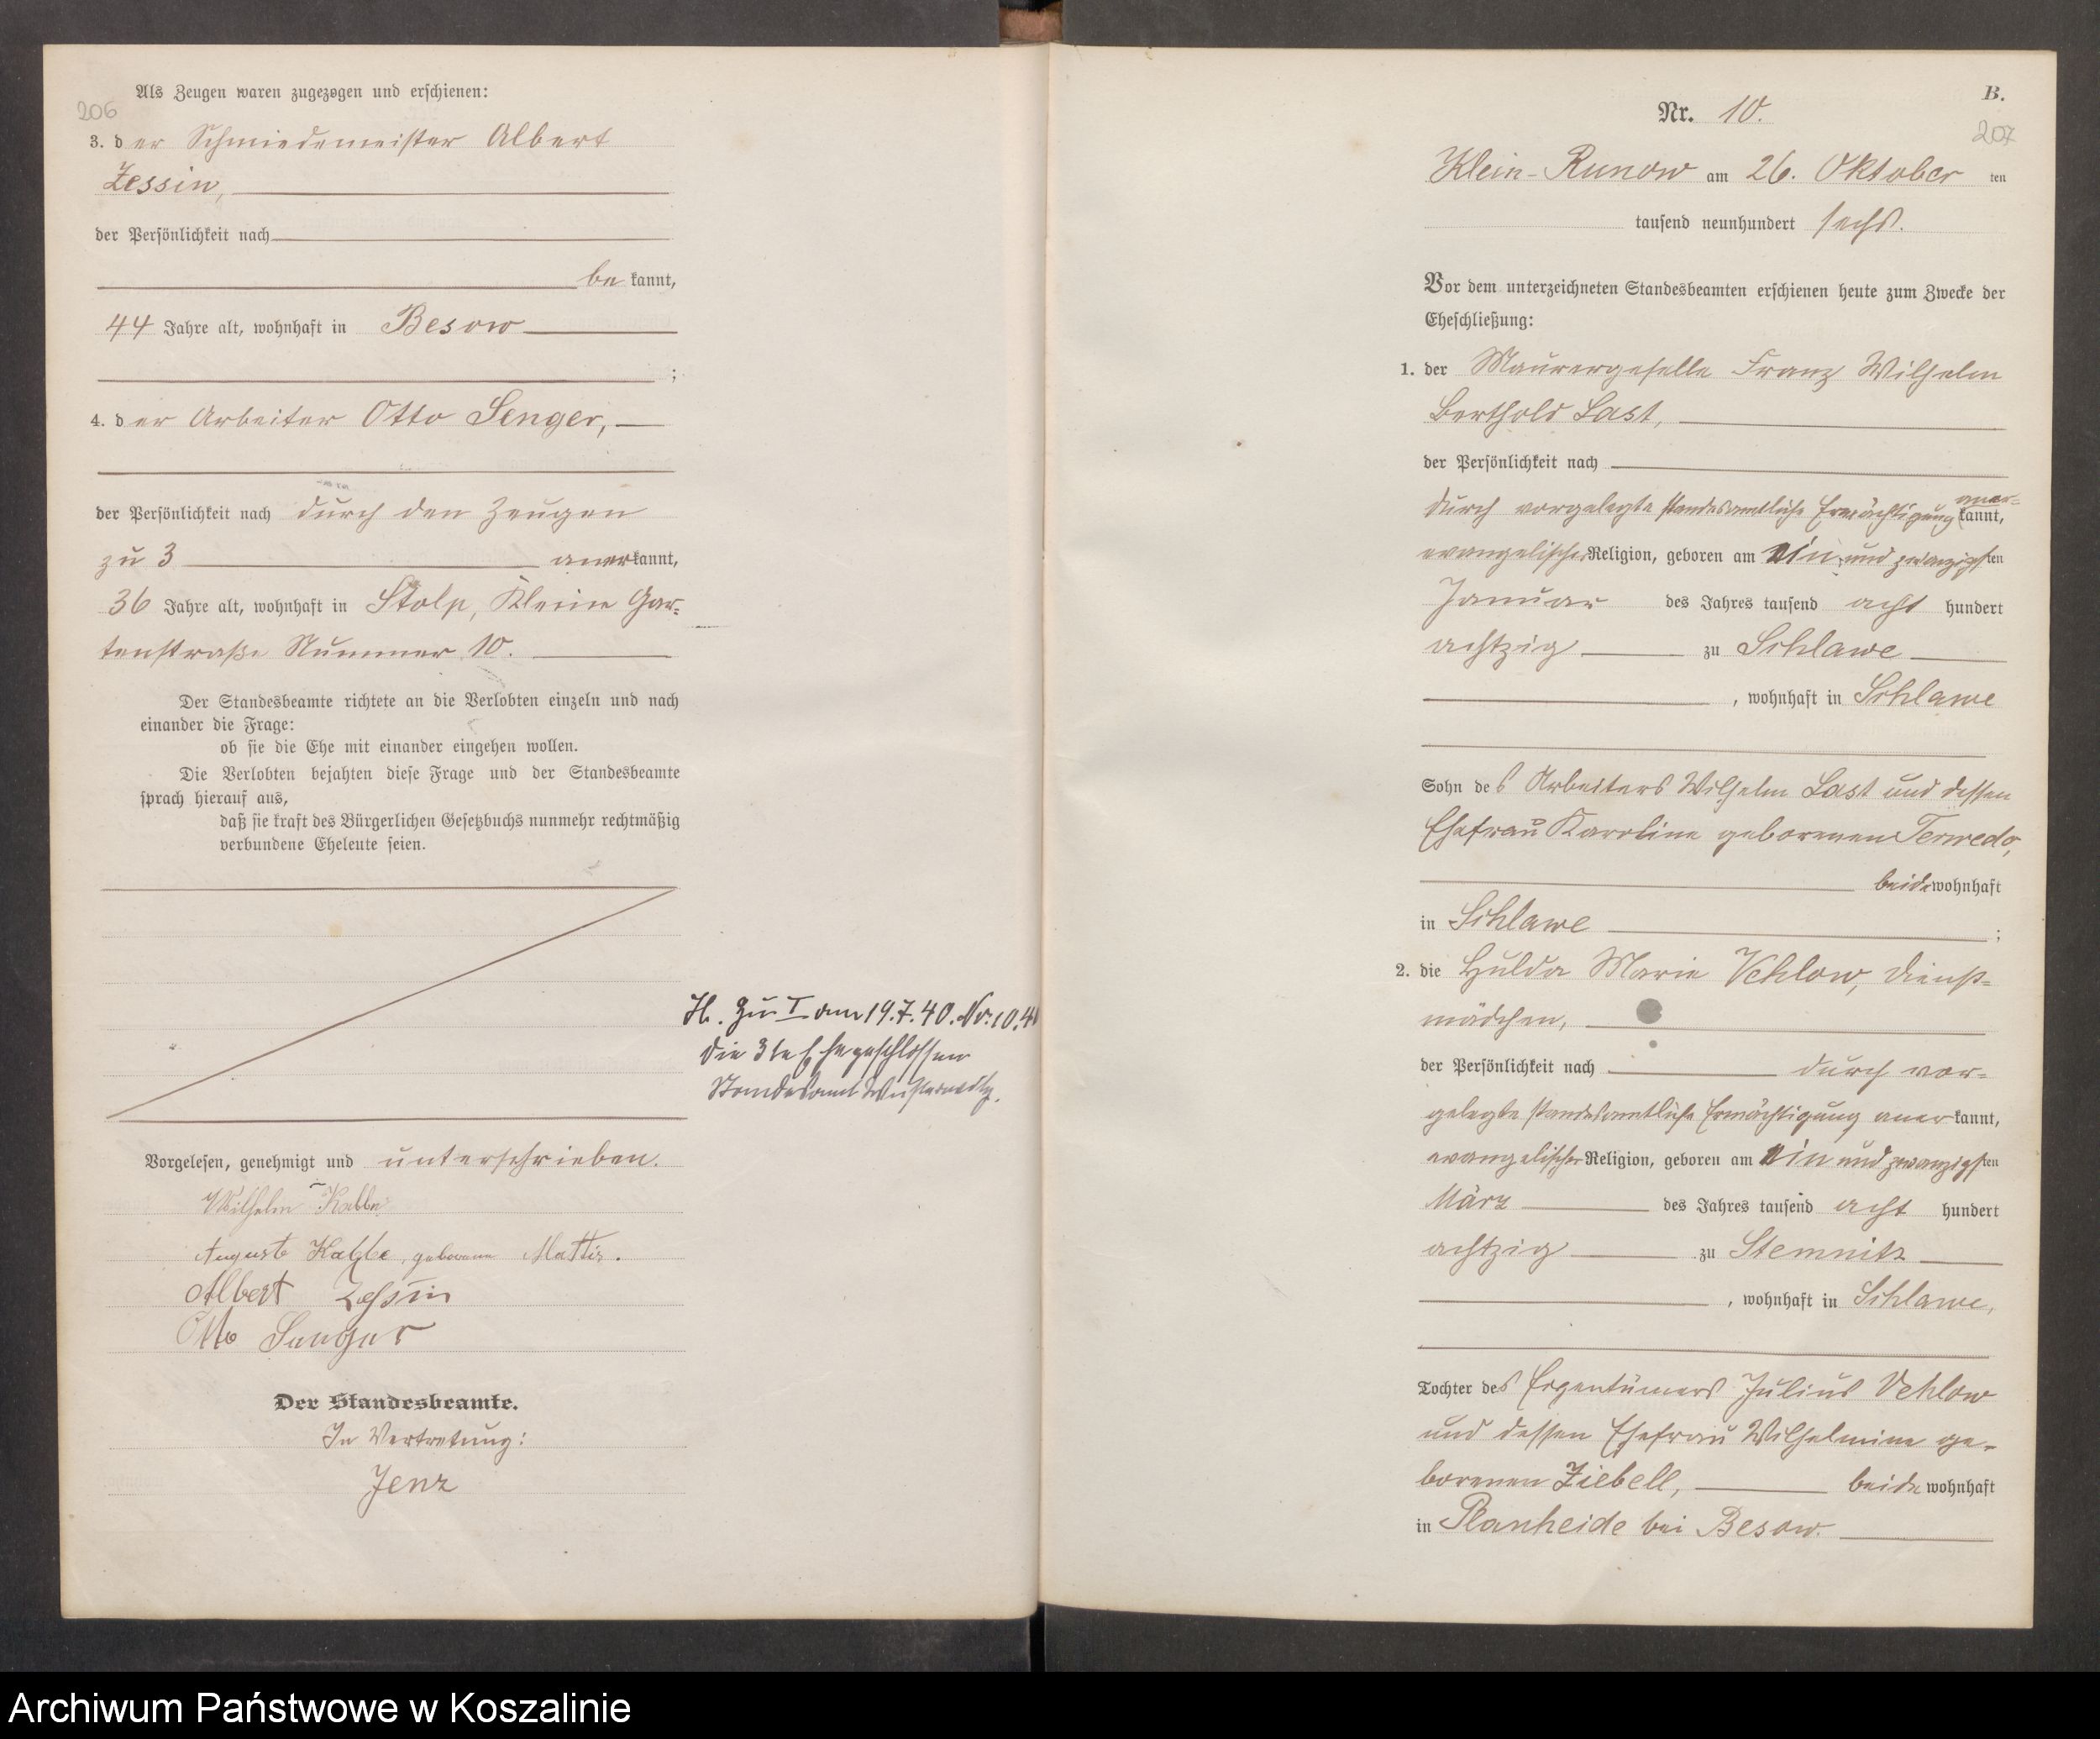 206
Als Zeugen waren zugezogen und erschienen:
3. der Schmiedemeister Albert
Zessin,
der Persönlichkeit nach
be kannt,
44 Jahre alt, wohnhaft in Besow
;
4. der Arbeiter Otto Senger,
der Persönlichkeit nach durch den Zeugen
zu 3 anerkannt,
36 Jahre alt, wohnhaft in Stolp, Kleine Gar-
tenstraße Nummer 10.
Der Standesbeamte richtete an die Verlobten einzeln und nach
einander die Frage:
ob sie die Ehe mit einander eingehen wollen.
Die Verlobten bejahten diese Frage und der Standesbeamte
sprach hierauf aus,
daß sie kraft des Bürgerlichen Gesetzbuchs nunmehr rechtmäßig
verbundene Eheleute seien.
H. Zu I am 19.7.40. Nr. 10.40
die 3te Ehe geschlossen
Standesamt
Vorgelesen, genehmigt und unterschrieben.
Wilhelm
Auguste geborene Mattis.
Albert Zessin
Otto Senger
Der Standesbeamte.
In Vertretung:
Jenz
B.
Nr. 10.
207
Klein-Runow am 26. Oktober ten
tausend neunhundert sechs.
Vor dem unterzeichneten Standesbeamten erschienen heute zum Zwecke der
Eheschließung:
1. der Maurergeselle Franz Wilhelm
Berthold Last,
der Persönlichkeit nach
durch vorgelegte standesamtliche Ermächtigung aner-kannt,
evangelischer Religion, geboren am ein und zwanzigsten
Januar des Jahres tausend acht hundert
achtzig zu Schlawe
, wohnhaft in Schlawe
Sohn des Arbeiters Wilhelm Last und dessen
Ehefrau Karoline geborenen
beide wohnhaft
in Schlawe ;
2. die Hulda Marie Vehlow, Dienst-
mädchen,
der Persönlichkeit nach durch vor-
gelegte standesamtliche Ermächtigung aner kannt,
evangelischer Religion, geboren am ein und zwanzigsten
März des Jahres tausend acht hundert
achtzig zu Stemnitz
, wohnhaft in Schlawe,
Tochter des Eigentümers Julius Vehlow
und dessen Ehefrau Wilhelmine ge-
borenen Ziebell, beide wohnhaft
in Planheide bei Besow.
Archiwum Państwowe w Koszalinie